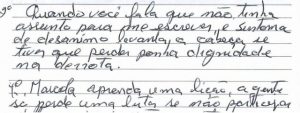 3º Quando você fala que não tinha
assunto para me escrever, é sintoma
de desanimo levanta a cabeça se
tiver que perder ponha dignidade
na derrota.
4º Marcola aprenda uma lição, a gente
só perde uma luta se não participar